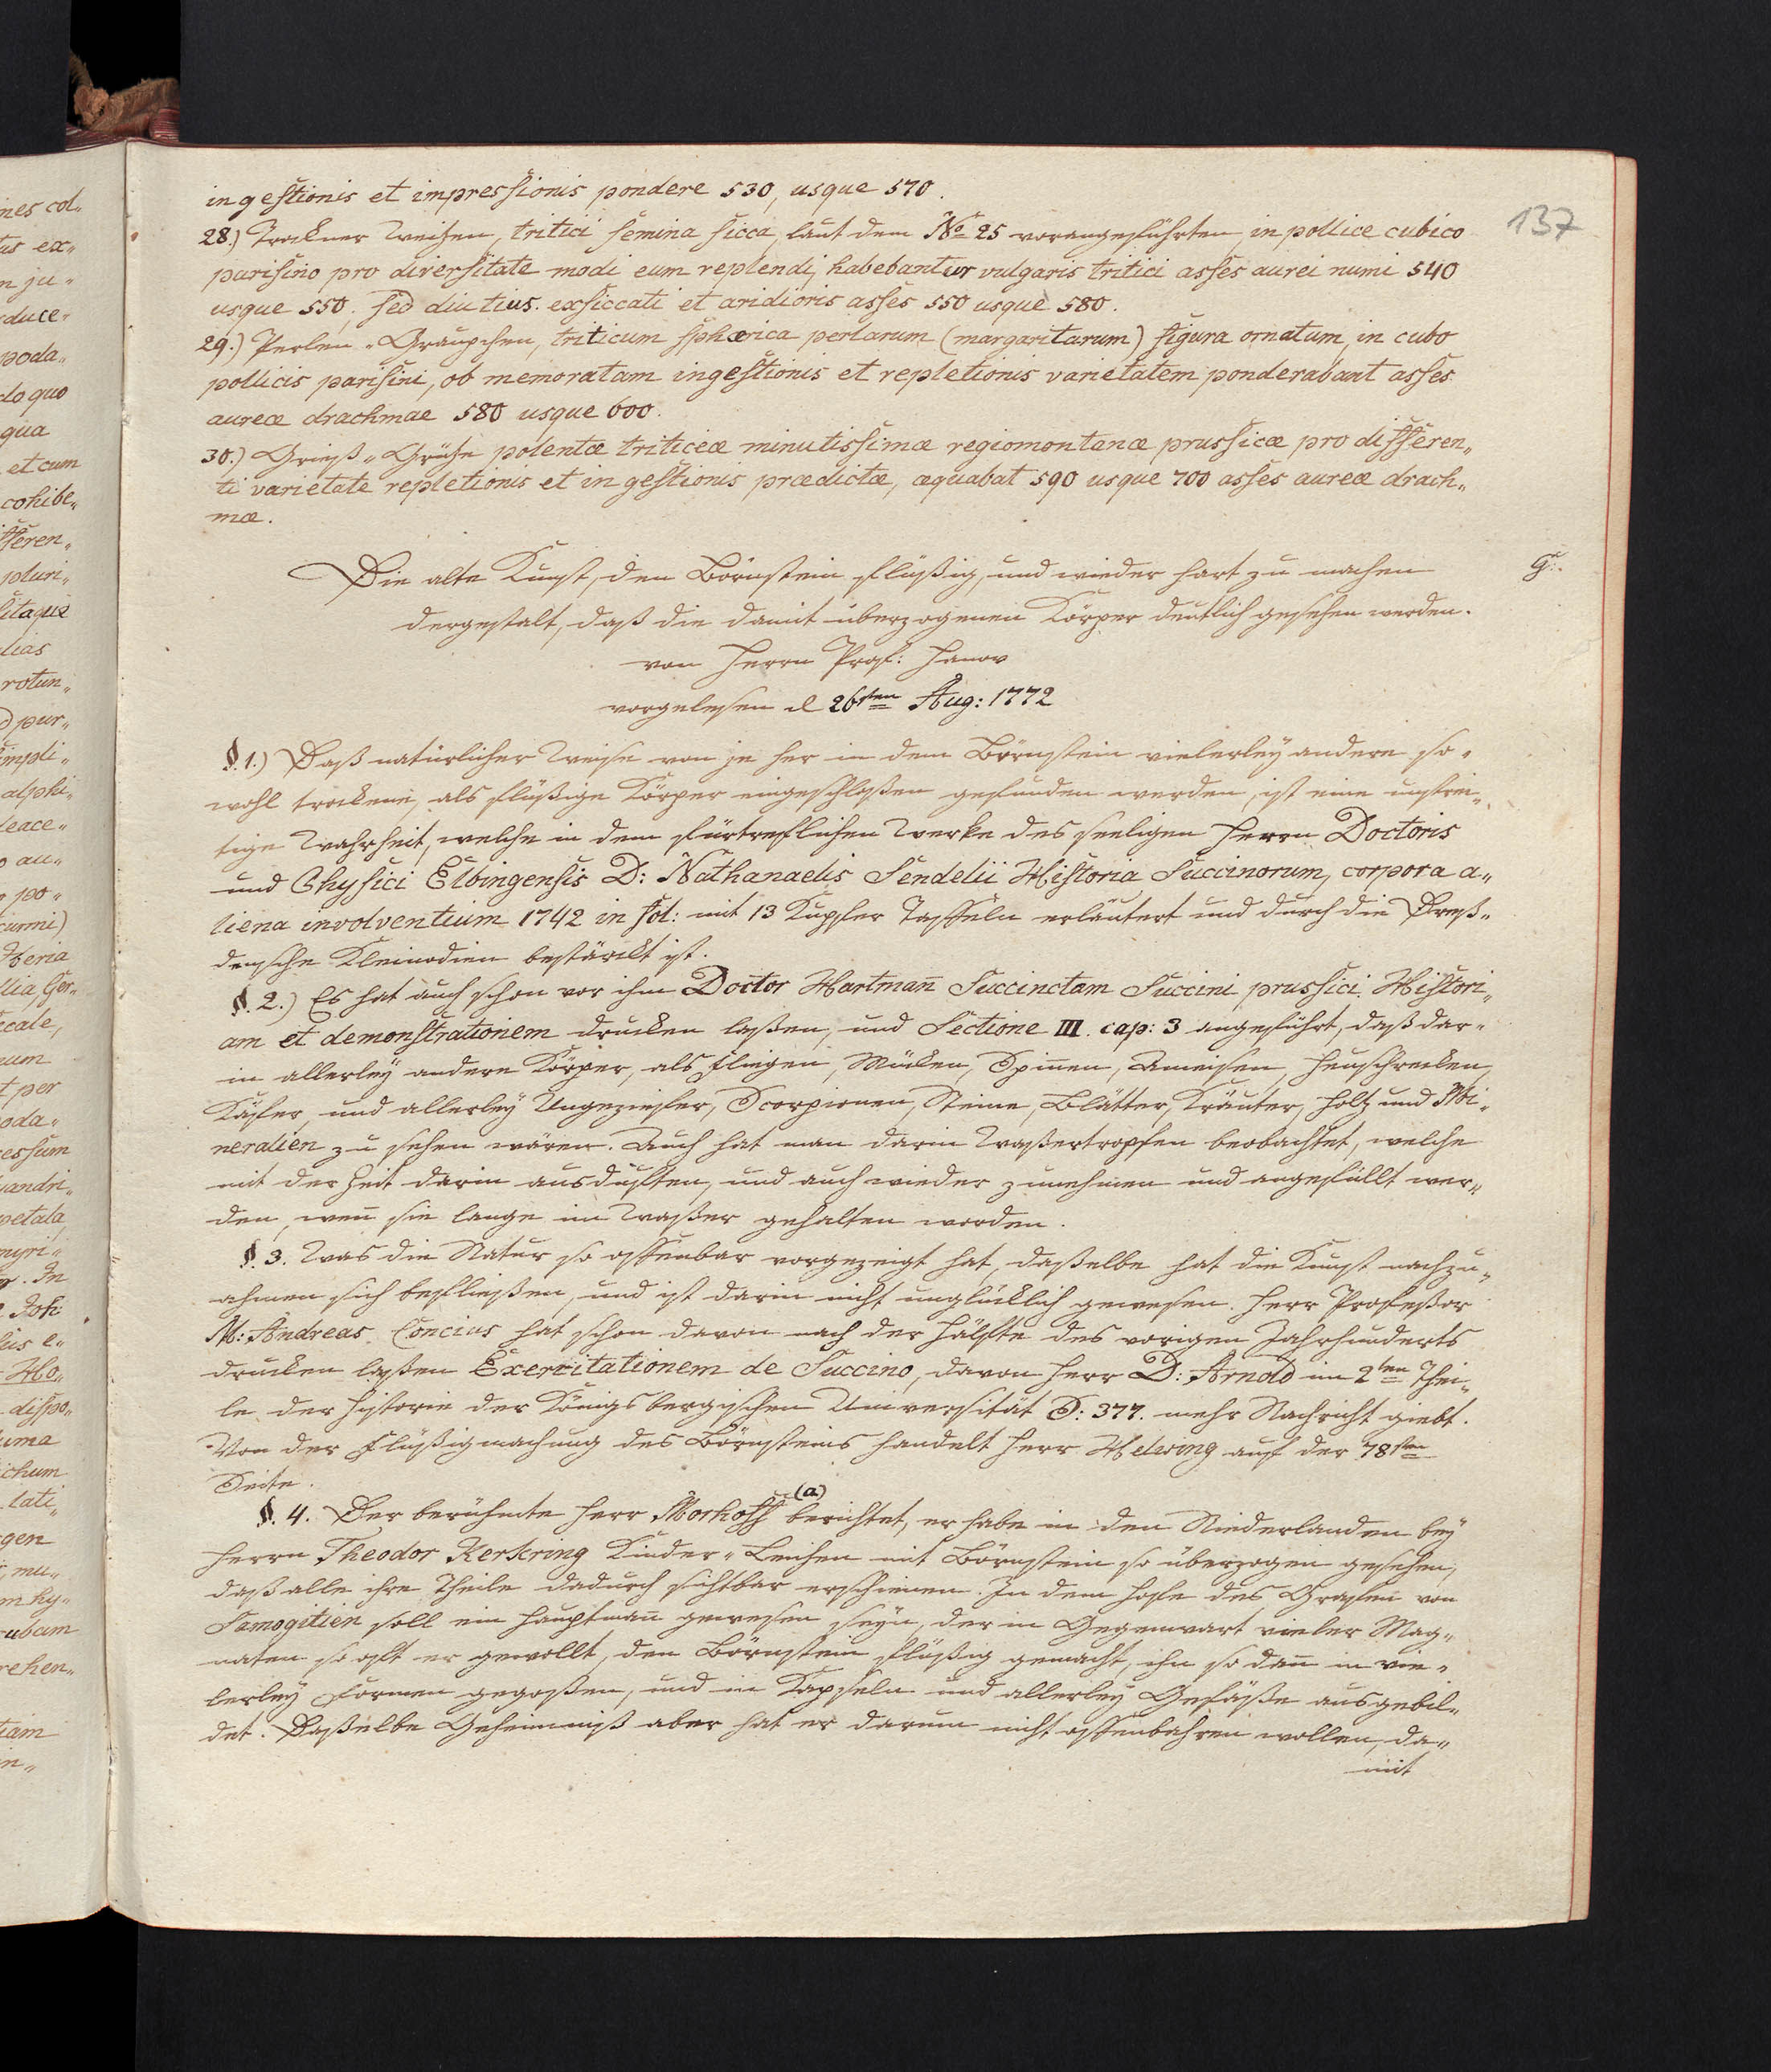 137
ingestionis et impressionis pondere 530, usque 570.
28.) Trockner Weitzen, tritici semina sicca, laut dem No 25 vorangeführten, in pollice cubico
parisino pro diversitate modi eum replendi, habebantur vulgaris tritici asses aurei numi 540
usque 550. sed diutius. exsiccati et aridioris asses 550 usque 580.
29.) Perlen-Graupchen, triticum sphærica perlarum (margaritarum) figura ornatum, in cubo
pollicis parisini, ob memoratam ingestionis et repletionis varietatem ponderabant asses
aureæ drachmae 580 usque 600.
30.) Grieß-Grütze polentæ triticeæ minutissimæ regiomontanæ prussicæ pro differen-
ti varietate repletionis et ingestionis prædictæ, æquabat 590 usque 700 asses aureæ drach-
mæ.
Die alte Kunst, den Börnstein flüßig, und wieder hart zu machen
G:.
dergestalt, daß die damit überzogenen Körper deutlich gesehen werden.
von Herrn Prof: Hanov
vorgelesen d 26sten Aug: 1772
§.1.) Daß natürlicher Weise von je her in dem Börnstein vielerley andere so-
wohl trockene, als flüßige Körper eingeschloßen gefunden werden, ist eine unstrei-
tige Wahrheit, welche in dem fürtreflichen Werke des seeligen Herrn Doctoris
und Physici Elbingensis D: Nathanaelis Sendelii Historia Succinorum, corpora a-
liena involventium 1742 in fol: mit 13 Kupfer Taffeln erläutert und durch die Dreß-
densche Kleinodien bestärckt ist.
§. 2.) Es hat auch schon vor ihm Doctor Hartman̄ Succinctam Succini prussici Histori-
am et demonstrationem drucken laßen, und Sectione III. cap: 3 angeführt, daß dar-
in allerley andere Körper, als Fliegen, Mücken, Spin̄en, Ameisen, Heuschrecken,
Käfer und allerley Ungeziefer, Scorpionen, Steine, Blätter, Kräuter, Holtz und Mi-
neralien zu sehen wären. Auch hat man darin Waßertropfen beobachtet, welche
mit der Zeit darin ausdufften, und auch wieder zunehmen und angefüllt wer-
den, wen̄ sie lange im Waßer gehalten worden.
§. 3. Was die Natur so offenbar vorgezeigt hat, daßelbe hat die Kunst nachzu-
ahmen sich befließen, und ist darin nicht unglücklich gewesen. Herr Profeßor
M: Andreas Concius hat schon davon nach der Hälfte des vorigen Jahrhunderts
drucken laßen Exercitationem de Succino, davon Herr D: Arnold im 2ten Thei-
le der Historie der Königsbergischen Universität S: 377. mehr Nachricht giebt.
Von der Flüßigmachung des Börnsteins handelt Herr Helwing auf der 78sten
Seite.
§. 4. Der berühmte Herr Morhoff (a) berichtet, er habe in den Niederlanden bey
Herrn Theodor Kerkring Kinder-Leichen mit Börnstein so überzogen gesehen,
daß alle ihre Theile dadurch sichtbar erschienen. In dem Hofe des Grafen von
Samogitien soll ein Hauptman̄ gewesen seyn, der in Gegenwart vieler Mag-
naten so oft er gewollt, den Börnstein flüßig gemacht, ihn so dan̄ in vie-
lerley Formen gegoßen, und in Kapseln und allerley Gefäße ausgebil-
det. Daßelbe Geheimniß aber hat er darum nicht offenbahren wollen, da-
mit